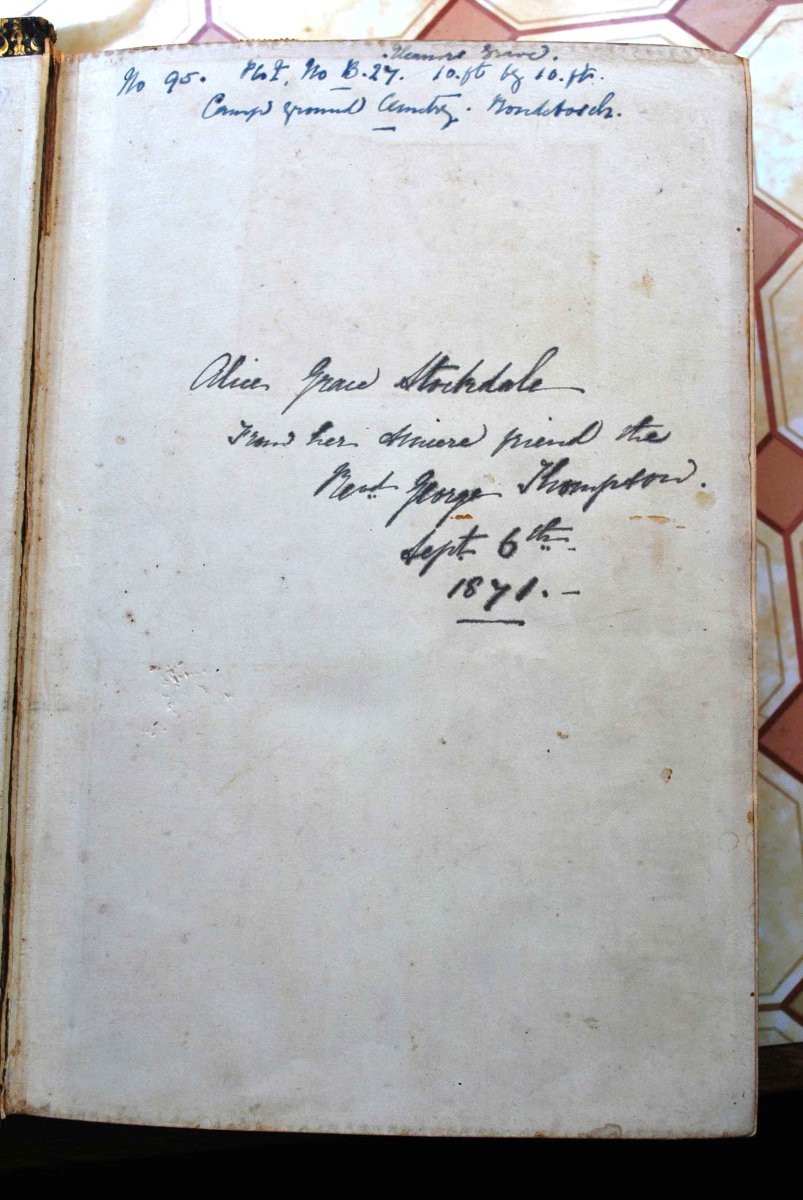 Grave.
No 95. Plot, No B.27. 10.ft by 10.ft.
Camp ground Cemetry. Rondebosch.
Alice Grace Stockdale
From her sincere friend the
Revd. George Thompson.
Sept. 6th.
1871. -